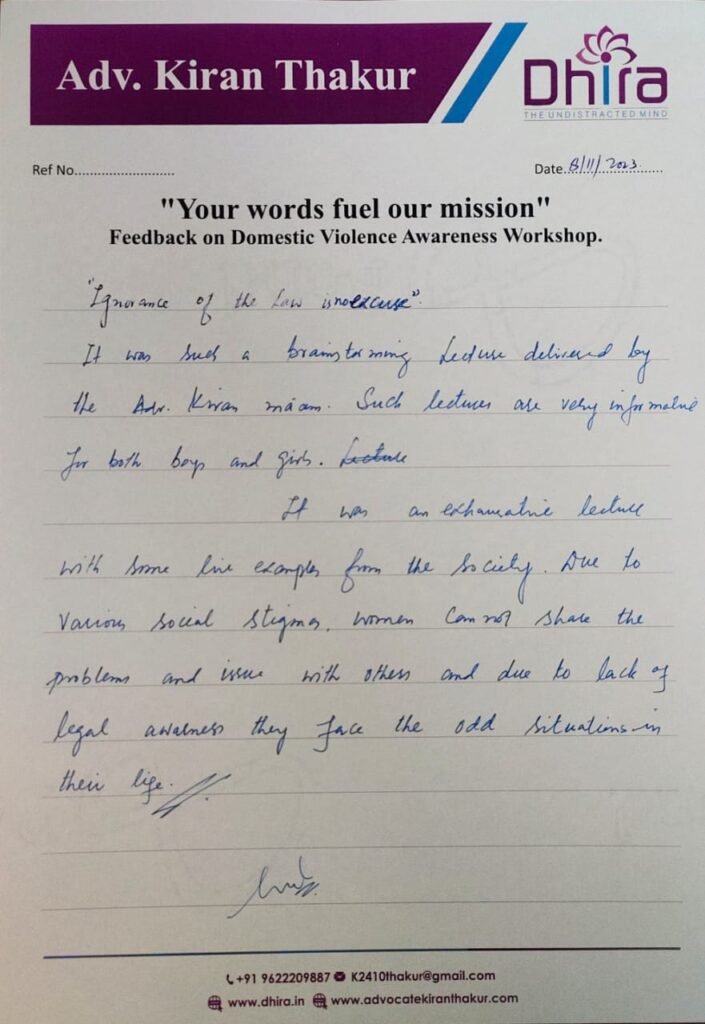 Adv. Kiran Thakur
Dhira
THE UNDISTRACTED MIND
Ref No..........................
Date. 8/11/2023.
"Your words fuel our mission"
Feedback on Domestic Violence Awareness Workshop.
"Ignorance of the Law is no excuse".
It was such a brainstorming Lecture delivered by
the Adv. Kiran ma'am. Such lectures are very informative
for both boys and girls. Lecture
It was an exhaustive lecture
with some live examples from the society. Due to
various social stigmas, women can not share the
problems and issue with others and due to lack of
legal awareness they face the odd situations in
their life.
+91 9622209887 K2410thakur@gmail.com
www.dhira.in www.advocatekiranthakur.com